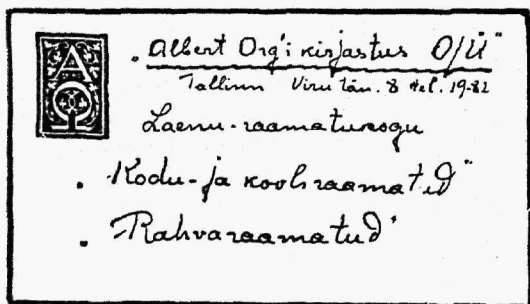 „Albert Org'i kirjastus O/Ü"
Tallinn Viru tän. 8 tel. 19-82
Laenu-raamatukogu
„Kodu- ja kooliraamatud"
„Rahvaraamatud"